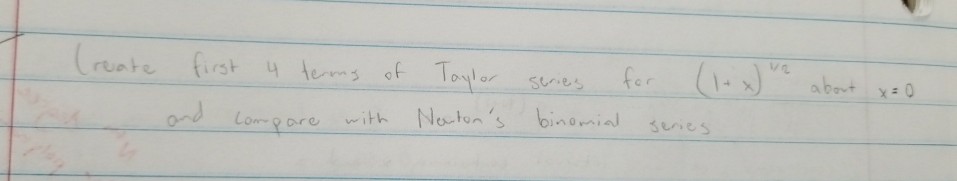 Create first 4 terms of Taylor series for (1+x)^1/2 about x=0
and compare with Newton's binomial series